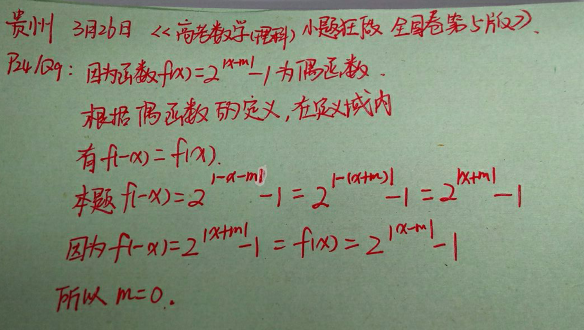 贵州 3月26日 《高考数学(理科)小题狂段 全国卷第5版》.
P24/Q9: 因为函数f(x)=2^|x-m|-1为偶函数.
根据偶函数的定义,在定义域内
有f(-x)=f(x).
本题f(-x)=2^|-x-m|-1=2^|-(x+m)|-1=2^|x+m|-1
因为f(-x)=2^|x+m|-1=f(x)=2^|x-m|-1
所以m=0.